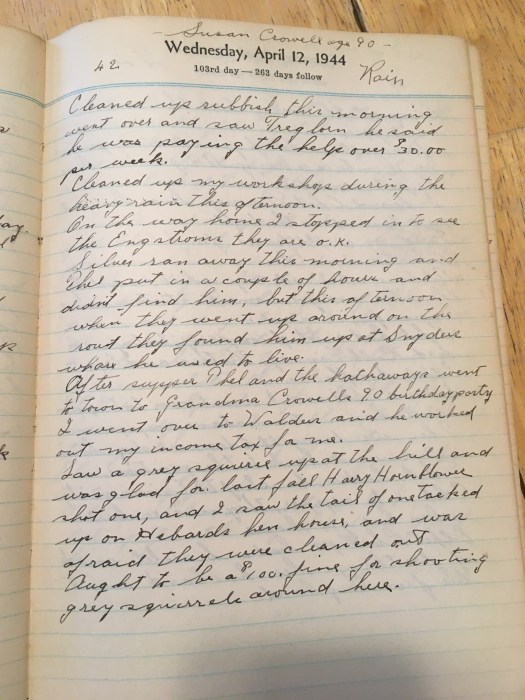 - Susan Crowell age 90 -
Wednesday, April 12, 1944
42
103rd day — 263 days follow
Rain
Cleaned up rubbish this morning
went over and saw Treglown he said
he was paying the help over $30.00
per week.
Cleaned up my workshop during the
heavy rain this afternoon.
On the way home I stopped in to see
the Engstroms they are o.k.
Silver ran away this morning and
Phel put in a couple of hours and
didnt find him, but this afternoon
when they went up around on the
rout they found him up at Snyders
whare he used to live.
After supper Phel and the hathaways went
to town to Grandma Crowells 90 birthday party
I went over to Waldus and he worked
out my income tax for me.
Saw a grey squirrel up at the hill and
was glad for last fall Harry Hornblower
shot one, and I saw the tail of one tacked
up on Hebards hen house, and was
afraid they were cleaned out
Aught to be a $100. fine for shooting
grey squirrels around here.